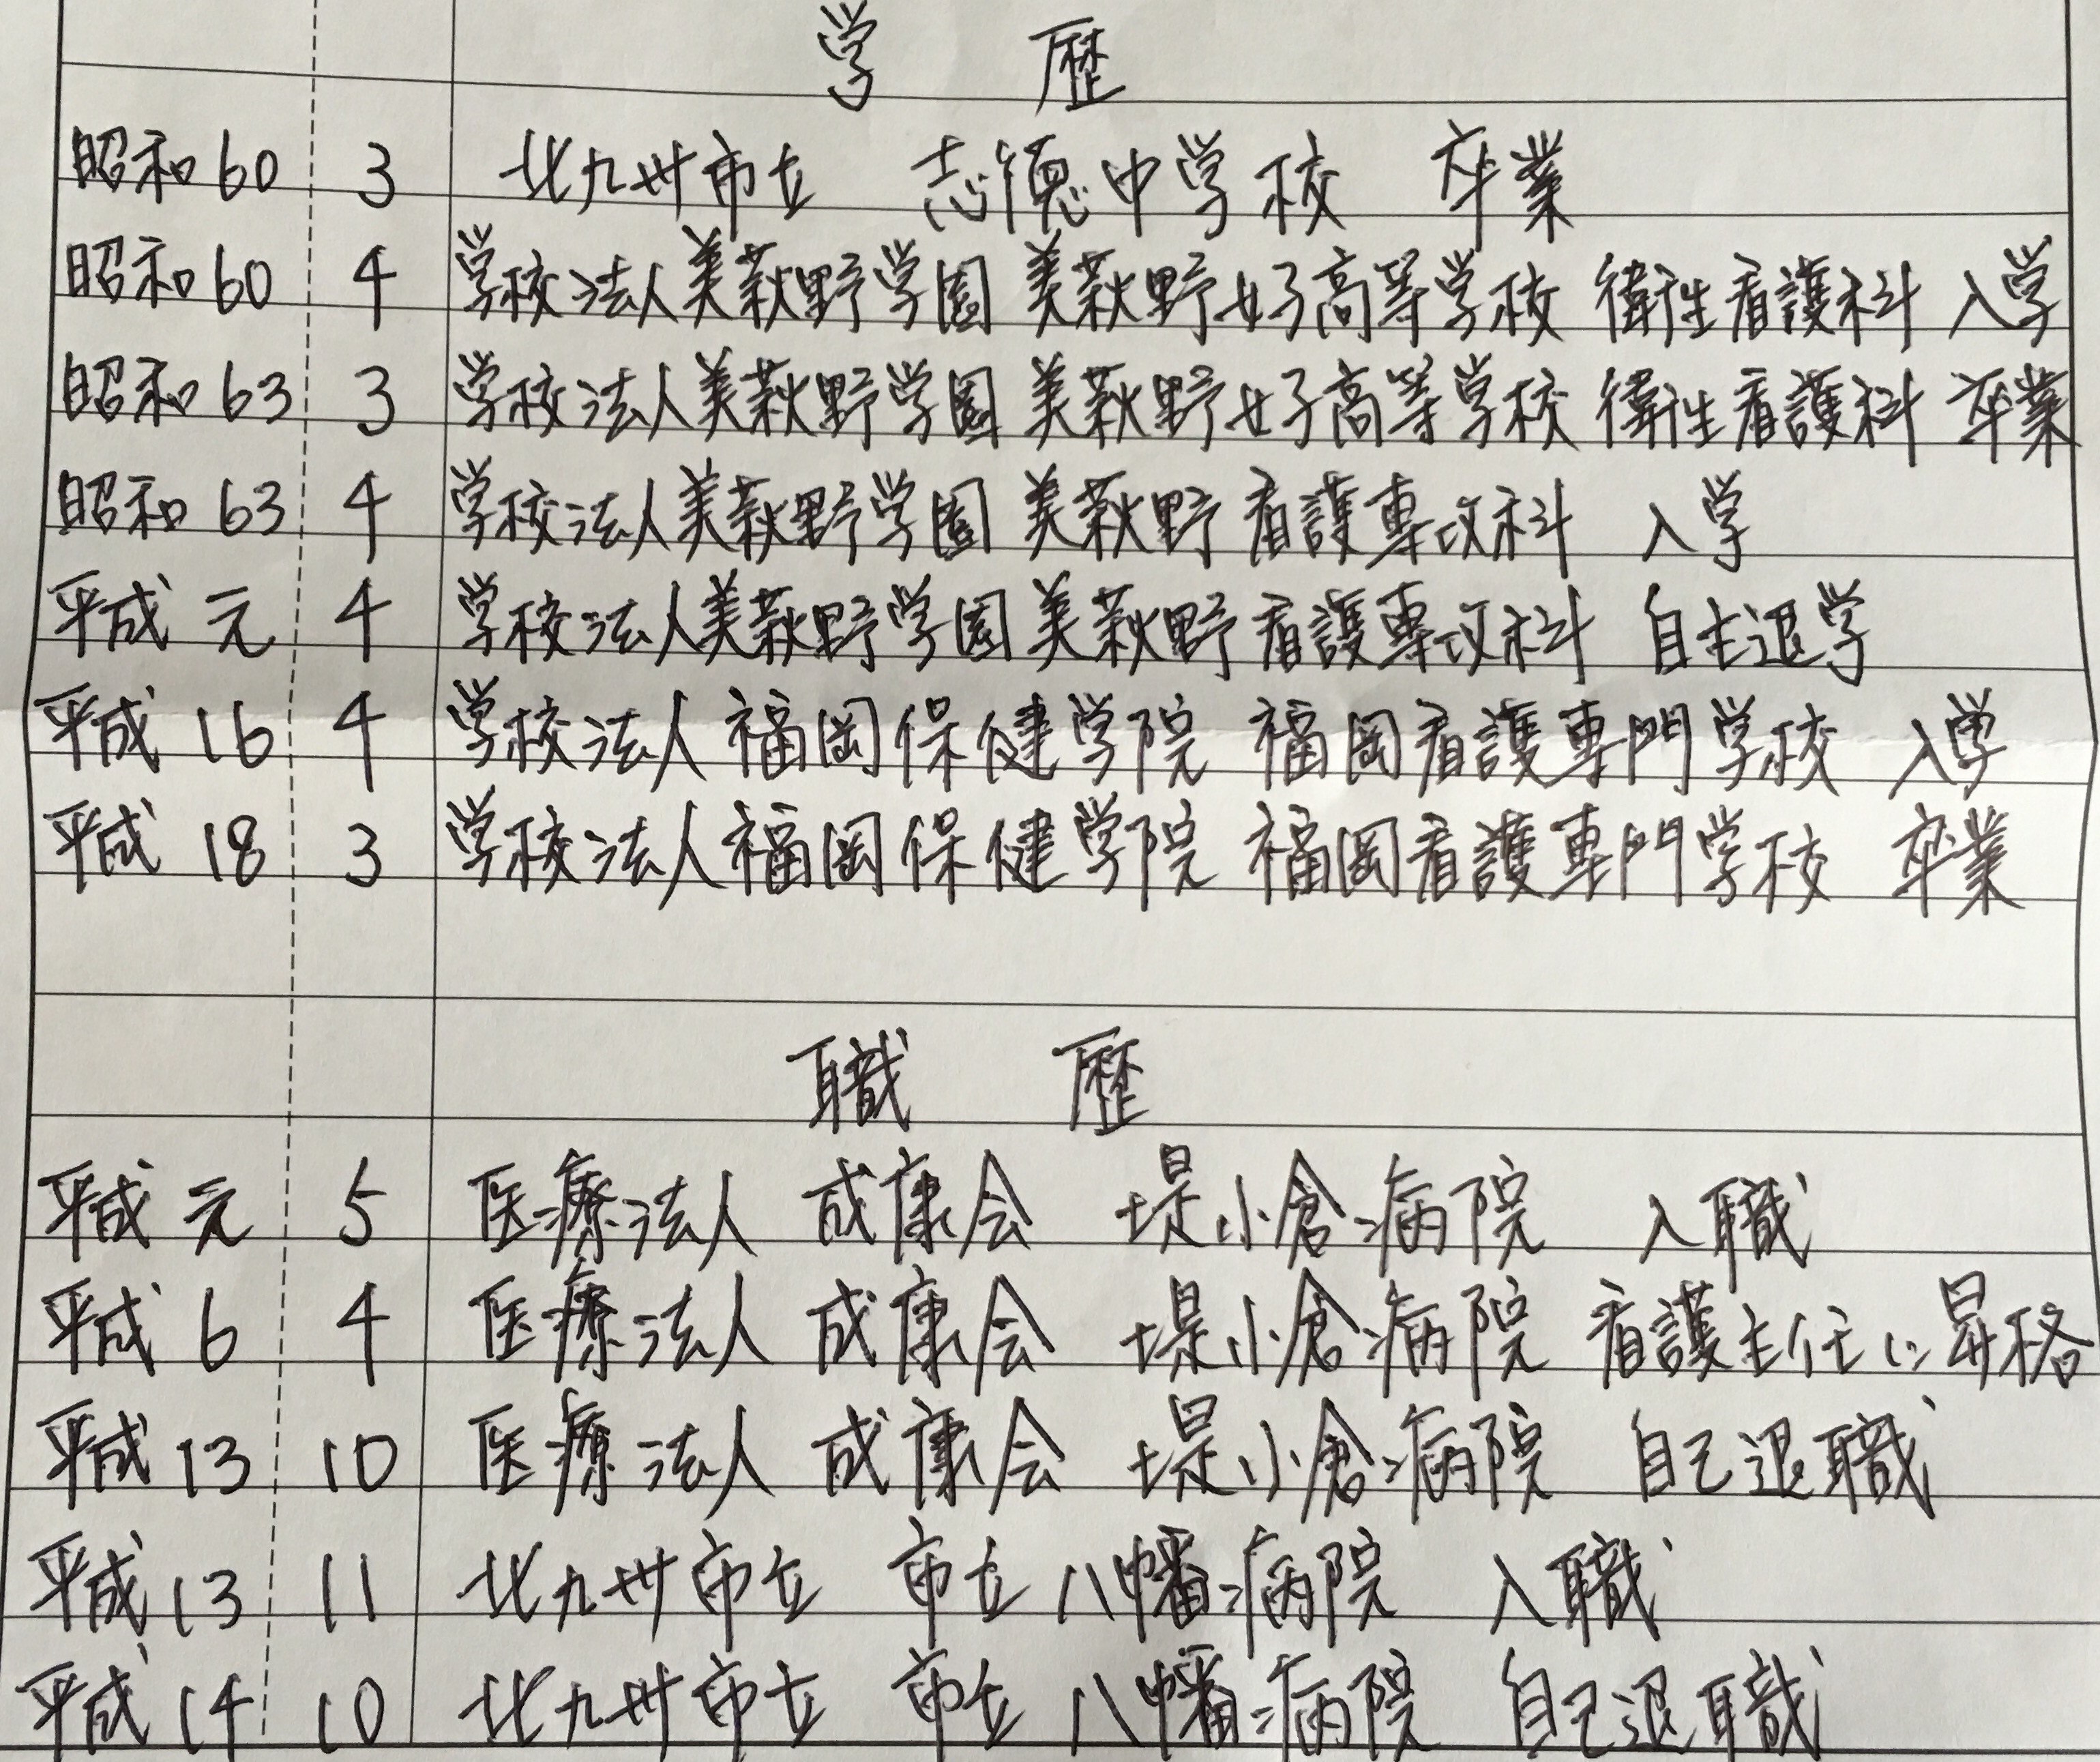 学 歴
昭和60 3 北九州市立 志徳中学校 卒業
昭和60 4 学校法人美萩野学園 美萩野女子高等学校 衛生看護科 入学
昭和63 3 学校法人美萩野学園 美萩野女子高等学校 衛生看護科 卒業
昭和63 4 学校法人美萩野学園 美萩野看護専攻科 入学
平成元 4 学校法人美萩野学園 美萩野看護専攻科 自主退学
平成16 4 学校法人福岡保健学院 福岡看護専門学校 入学
平成18 3 学校法人福岡保健学院 福岡看護専門学校 卒業
職 歴
平成元 5 医療法人 成康会 堤小倉病院 入職
平成6 4 医療法人 成康会 堤小倉病院 看護主任に昇格
平成13 10 医療法人 成康会 堤小倉病院 自己退職
平成13 11 北九州市立 市立八幡病院 入職
平成14 10 北九州市立 市立八幡病院 自己退職